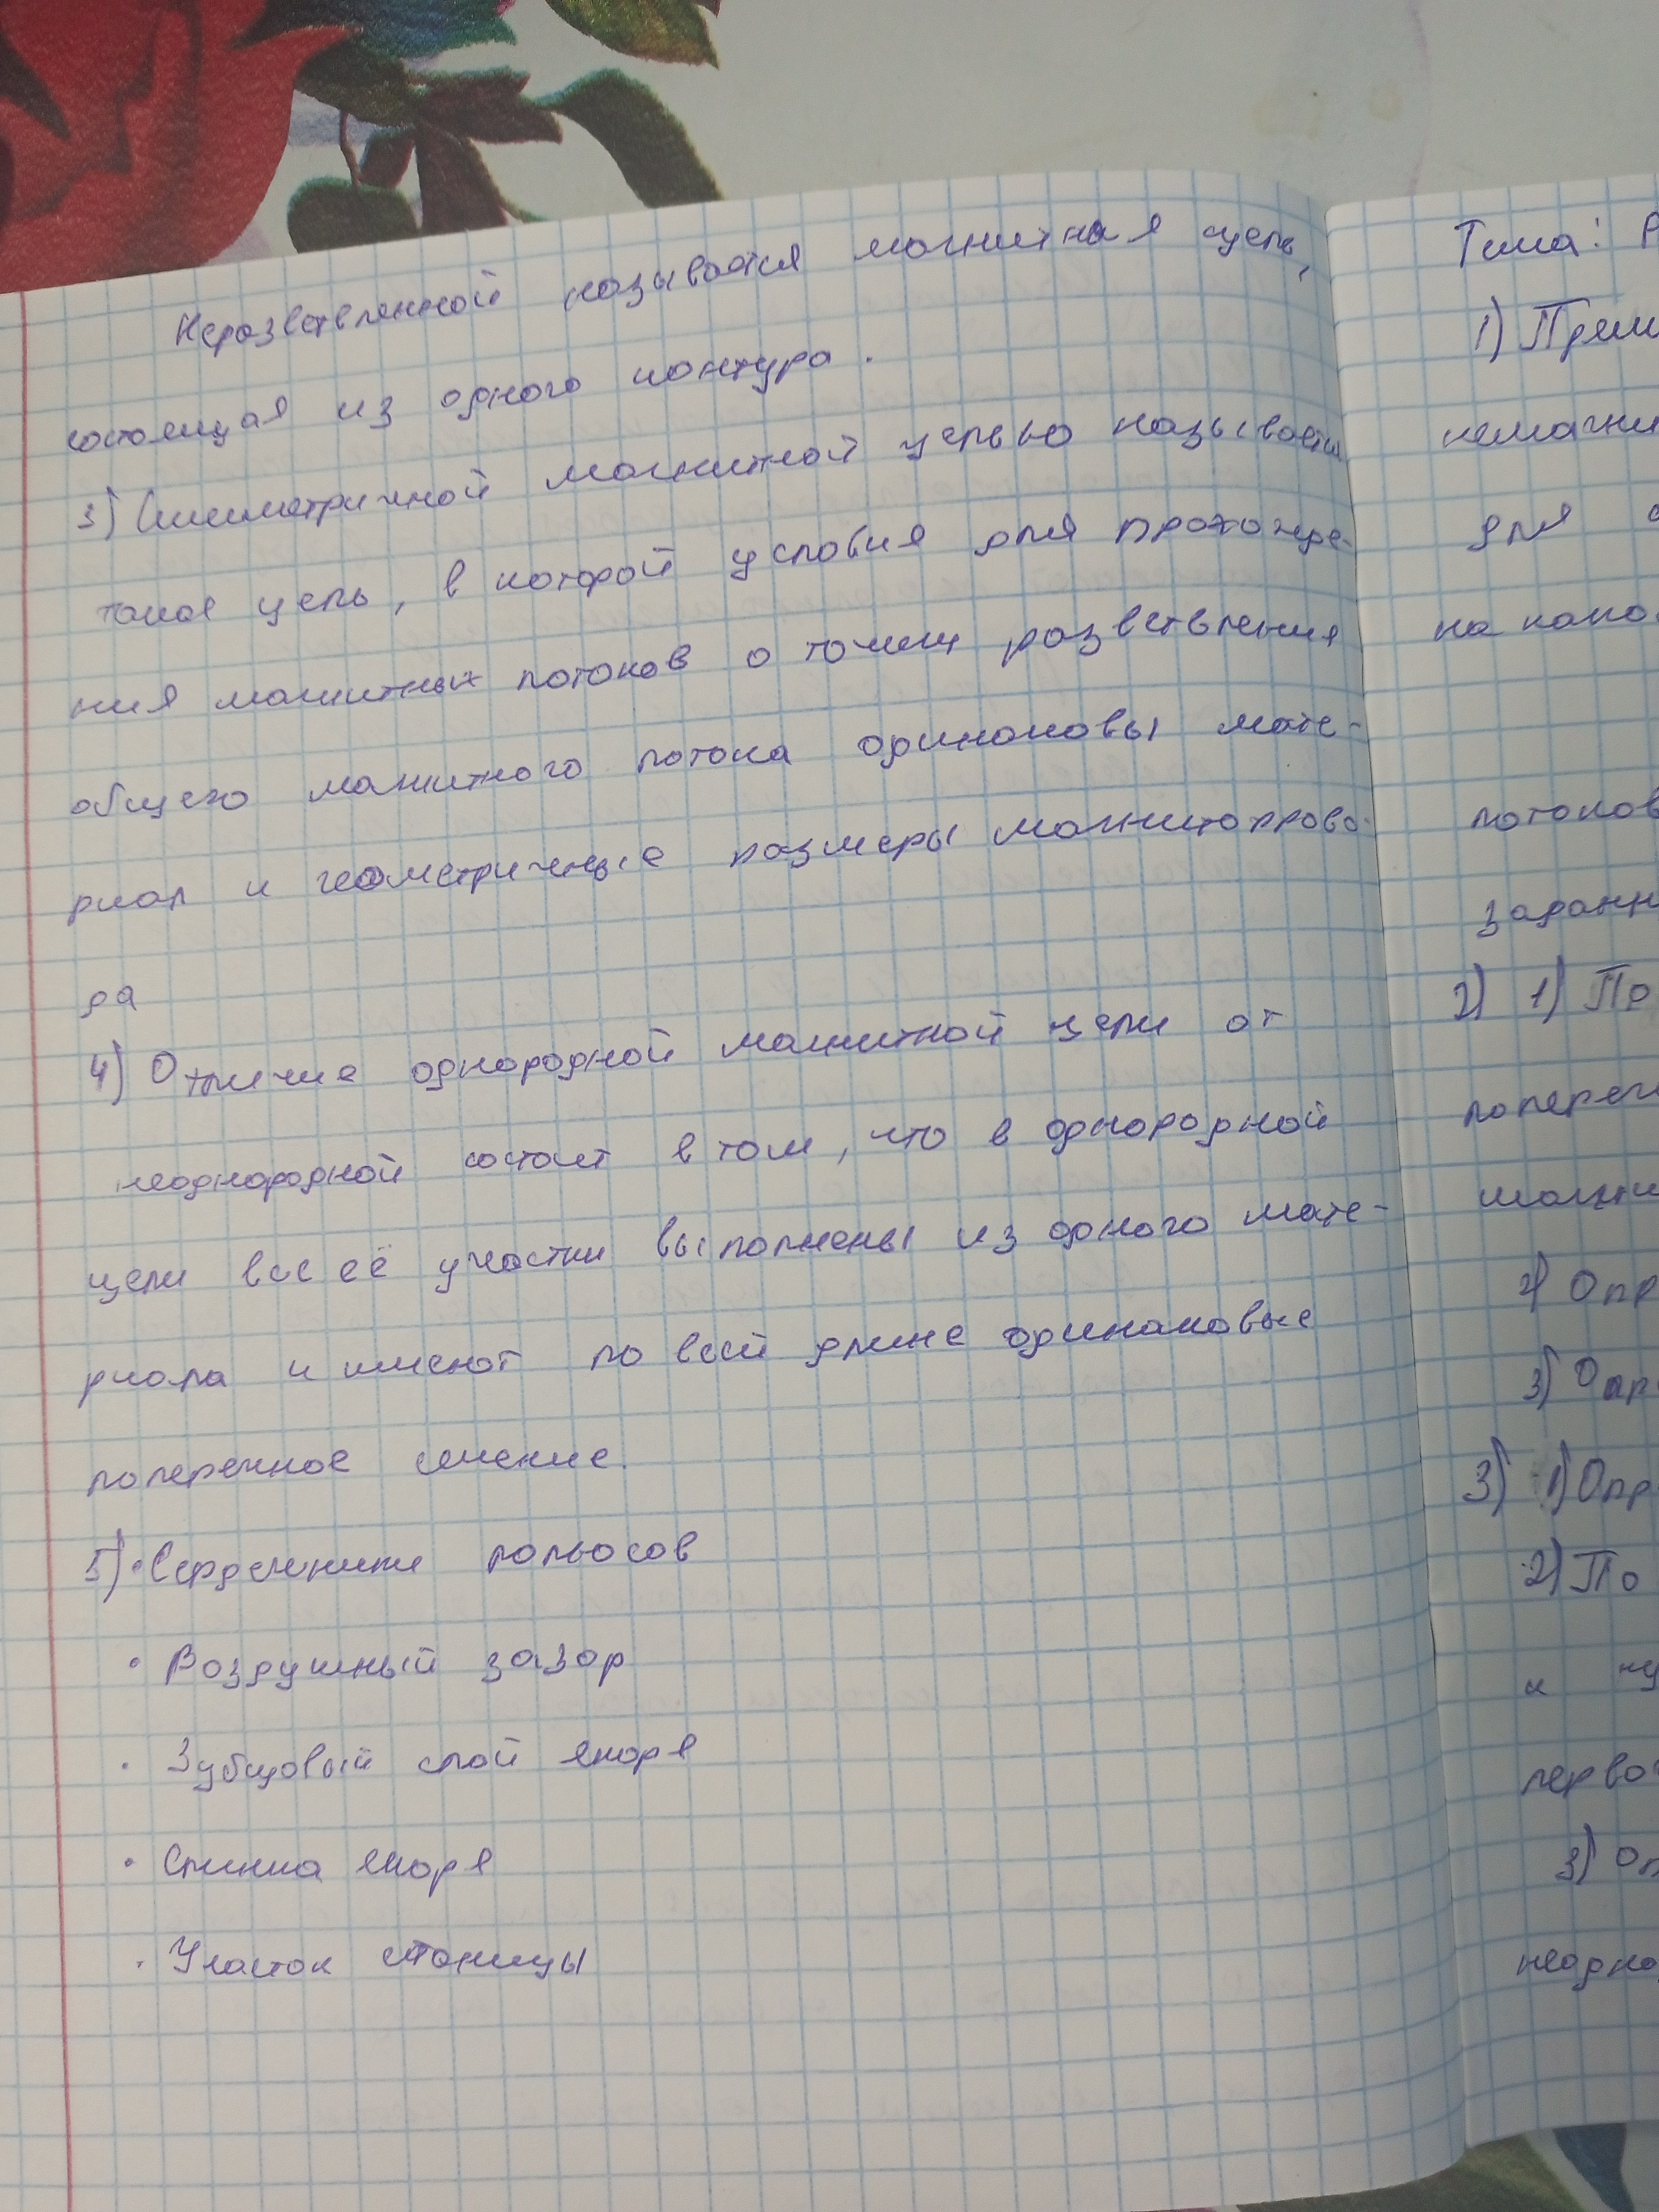 Неразветвленной называется магнитная цепь,
состоящая из одного контура.
3) Симметричной магнитной цепью называется
такая цепь, в которой условия для прохожде-
ния магнитных потоков о точки разветвления
общего магнитного потока одинаковы мате-
риал и геометричные размеры магнитопрово-
да
4) Отличие однородной магнитной цепи от
неоднородной состоит в том, что в однородной
цепи все её участки выполнены из одного мате-
риала и имеют по всей длине одинаковые
поперечное сечение.
5) • Сердечники полюсов
• Воздушный зазор
• Зубцовый слой якоря
• Спинка якоря
• Участок станицы
Тема: Р
1) Прим
немагни
для
потоков
заданн
2) 1) По
попереч
магни
2) Опр
3) Опр
3) 1) Опр
2) По
и
перво
3) Оп
неодно